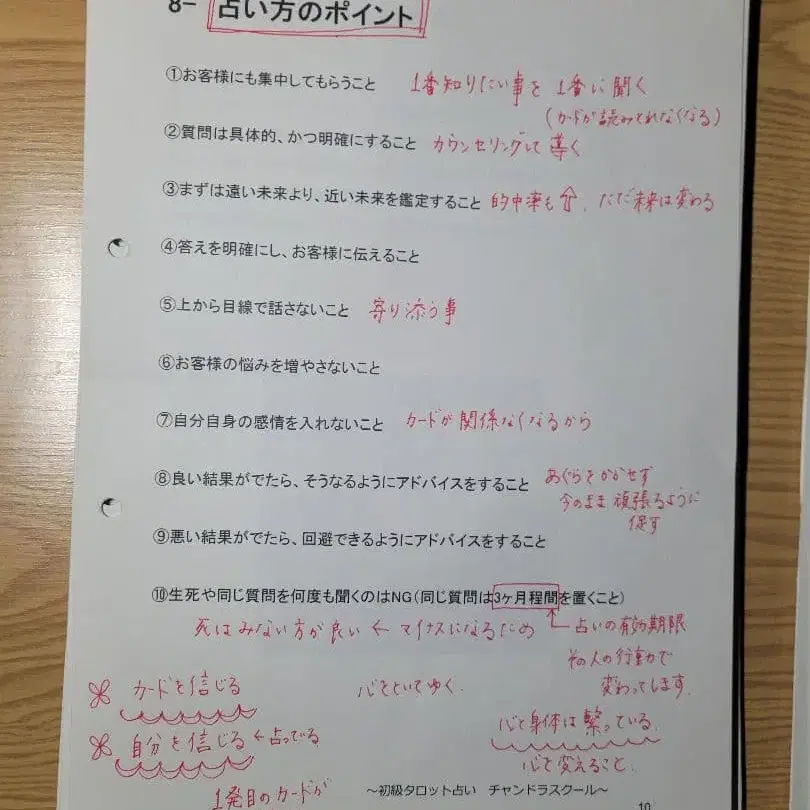 8- 占い方のポイント
①お客様にも集中してもらうこと 1番知りたい事を1番に聞く
(カードが読みとれなくなる)
②質問は具体的、かつ明確にすること カウンセリングして導く
③まずは遠い未来より、近い未来を鑑定すること 的中率も⇧、ただ未来は変わる
④答えを明確にし、お客様に伝えること
⑤上から目線で話さないこと 寄り添う事
⑥お客様の悩みを増やさないこと
⑦自分自身の感情を入れないこと カードが関係なくなるから
⑧良い結果がでたら、そうなるようにアドバイスをすること あぐらをかかせず
今のまま頑張るように
促す
⑨悪い結果がでたら、回避できるようにアドバイスをすること
⑩生死や同じ質問を何度も聞くのはNG(同じ質問は3ヶ月程間を置くこと)
死はみない方が良い ← マイナスになるため
占いの有効期限
その人の行動で
変わってします。
カードを信じる
心をといてゆく.
自分を信じる ← 占ってる
心と身体は繋っている.
心を変えること.
1発目のカードが
～初級タロット占い チャンドラスクール～
10